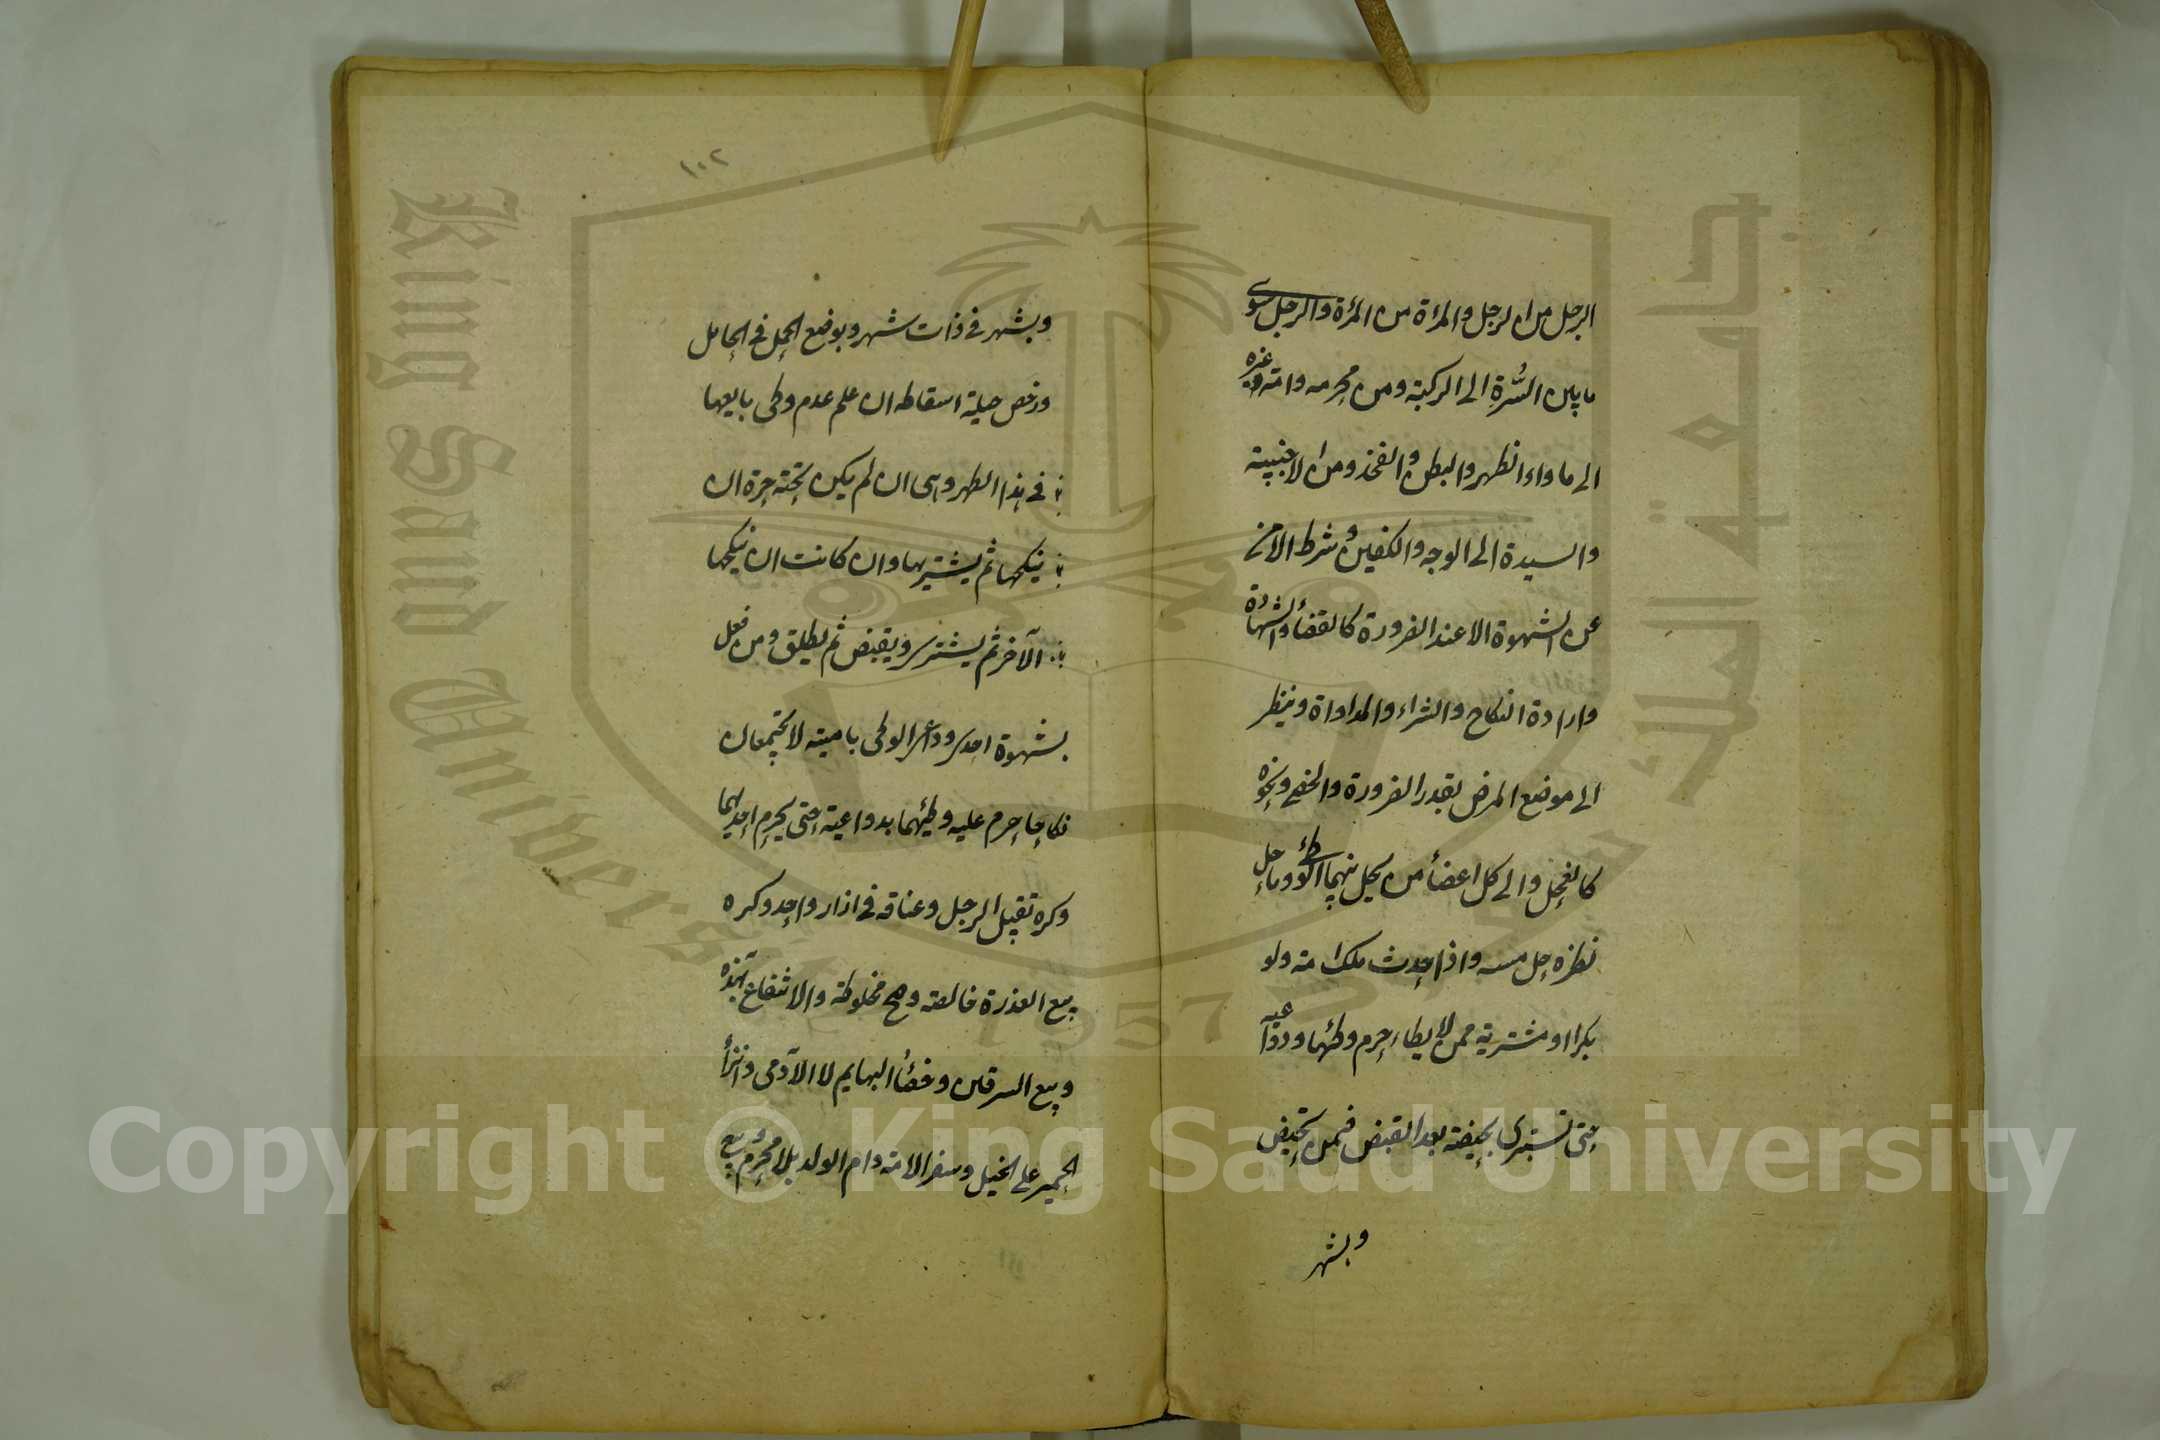 الرجل من الرجل والمرءة من المرءة والرجل سوى
ما بين السُّرة الى الركبة ومن محرمه وامة غيره
الى ما وراء الظهر والبطن والفخذ ومن الاجنبية
والسيدة الى الوجه والكفين وشرط الامن
عن الشهوة الا عند الضرورة كالقضأ والشهادة
وارادة النكاح والشراء والمداواة وينظر
الى موضع المرض بقدر الضرورة والخصي ونحوه
كالفحل والى كل اعضأ من يحل بينهما الوطئ وما حل
نظره حل مسه واذا حدث ملك امة ولو
بكرا او مشترية ممن لا يطاء حرم وطئها ودواعيه
حتى تستبرى بحيضة بعد القبض فيمن تحيض
وبشهر
١٠٢
وبشهر في ذات شهر وبوضع الحمل في الحامل
ورخص حيلة اسقاطه ان علم عدم وطى بايعها
في هذا الطهر وهى ان لم يكن تحته حرة ان
ينكحها ثم يشتريها وان كانت ان ينكحها
الآخر ثم يشترى ويقبض ثم يطلق ومن فعل
بشهوة احدى دواعى الوطى بامتيه لا تجتمعان
نكاحا حرم عليه وطيهما بدواعيه حتى يحرم احديهما
وكره تقبيل الرجل وعناقه في ازار واحد وكره
بيع العذرة خالصة وصح مخلوطة والانتفاع بهذه
وبيع السرقين وخصأ البهايم لا الآدمى وانزأ
الحمير على الخيل وسفر الامة وام الولد بلا محرم وبيع
King Saud University
جامعة الملك سعود
1957
Copyright © King Saud University